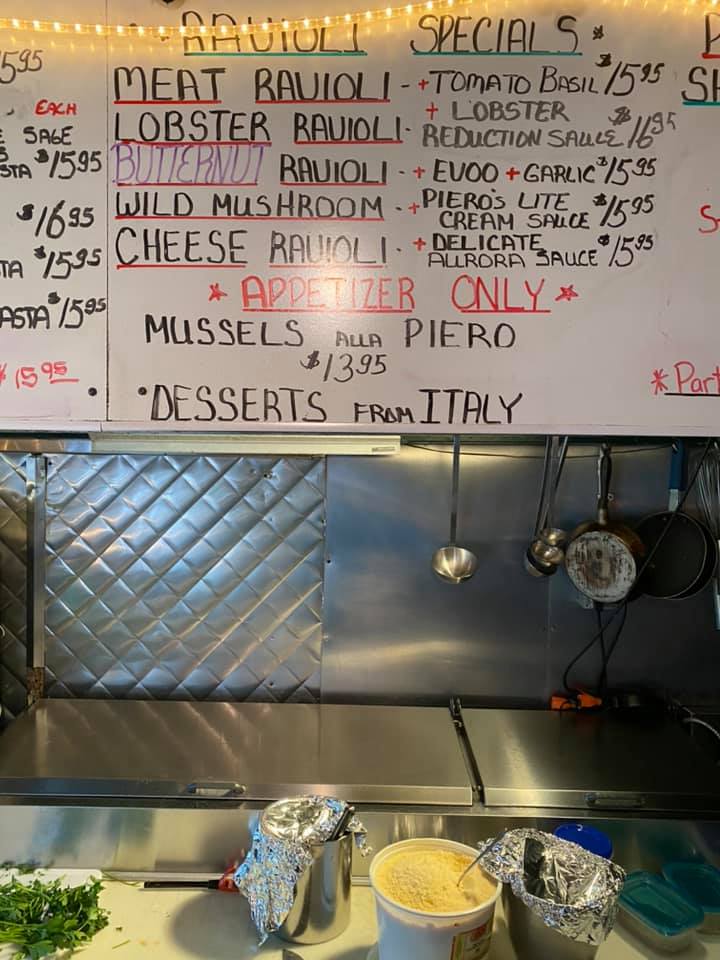 RAVIOLI SPECIALS
MEAT RAVIOLI - + TOMATO BASIL $15 95
LOBSTER RAVIOLI - + LOBSTER
REDUCTION SAUCE $16 95
BUTTERNUT RAVIOLI - + EVOO + GARLIC $15 95
WILD MUSHROOM - + PIERO'S LITE
CREAM SAUCE $15 95
CHEESE RAVIOLI - + DELICATE
AURORA SAUCE $15 95
* APPETIZER ONLY *
MUSSELS ALLA PIERO
$13 95
• DESSERTS FROM ITALY
EACH
SAGE
$15 95
$16 95
$15 95
$15 95
15 95
* Part